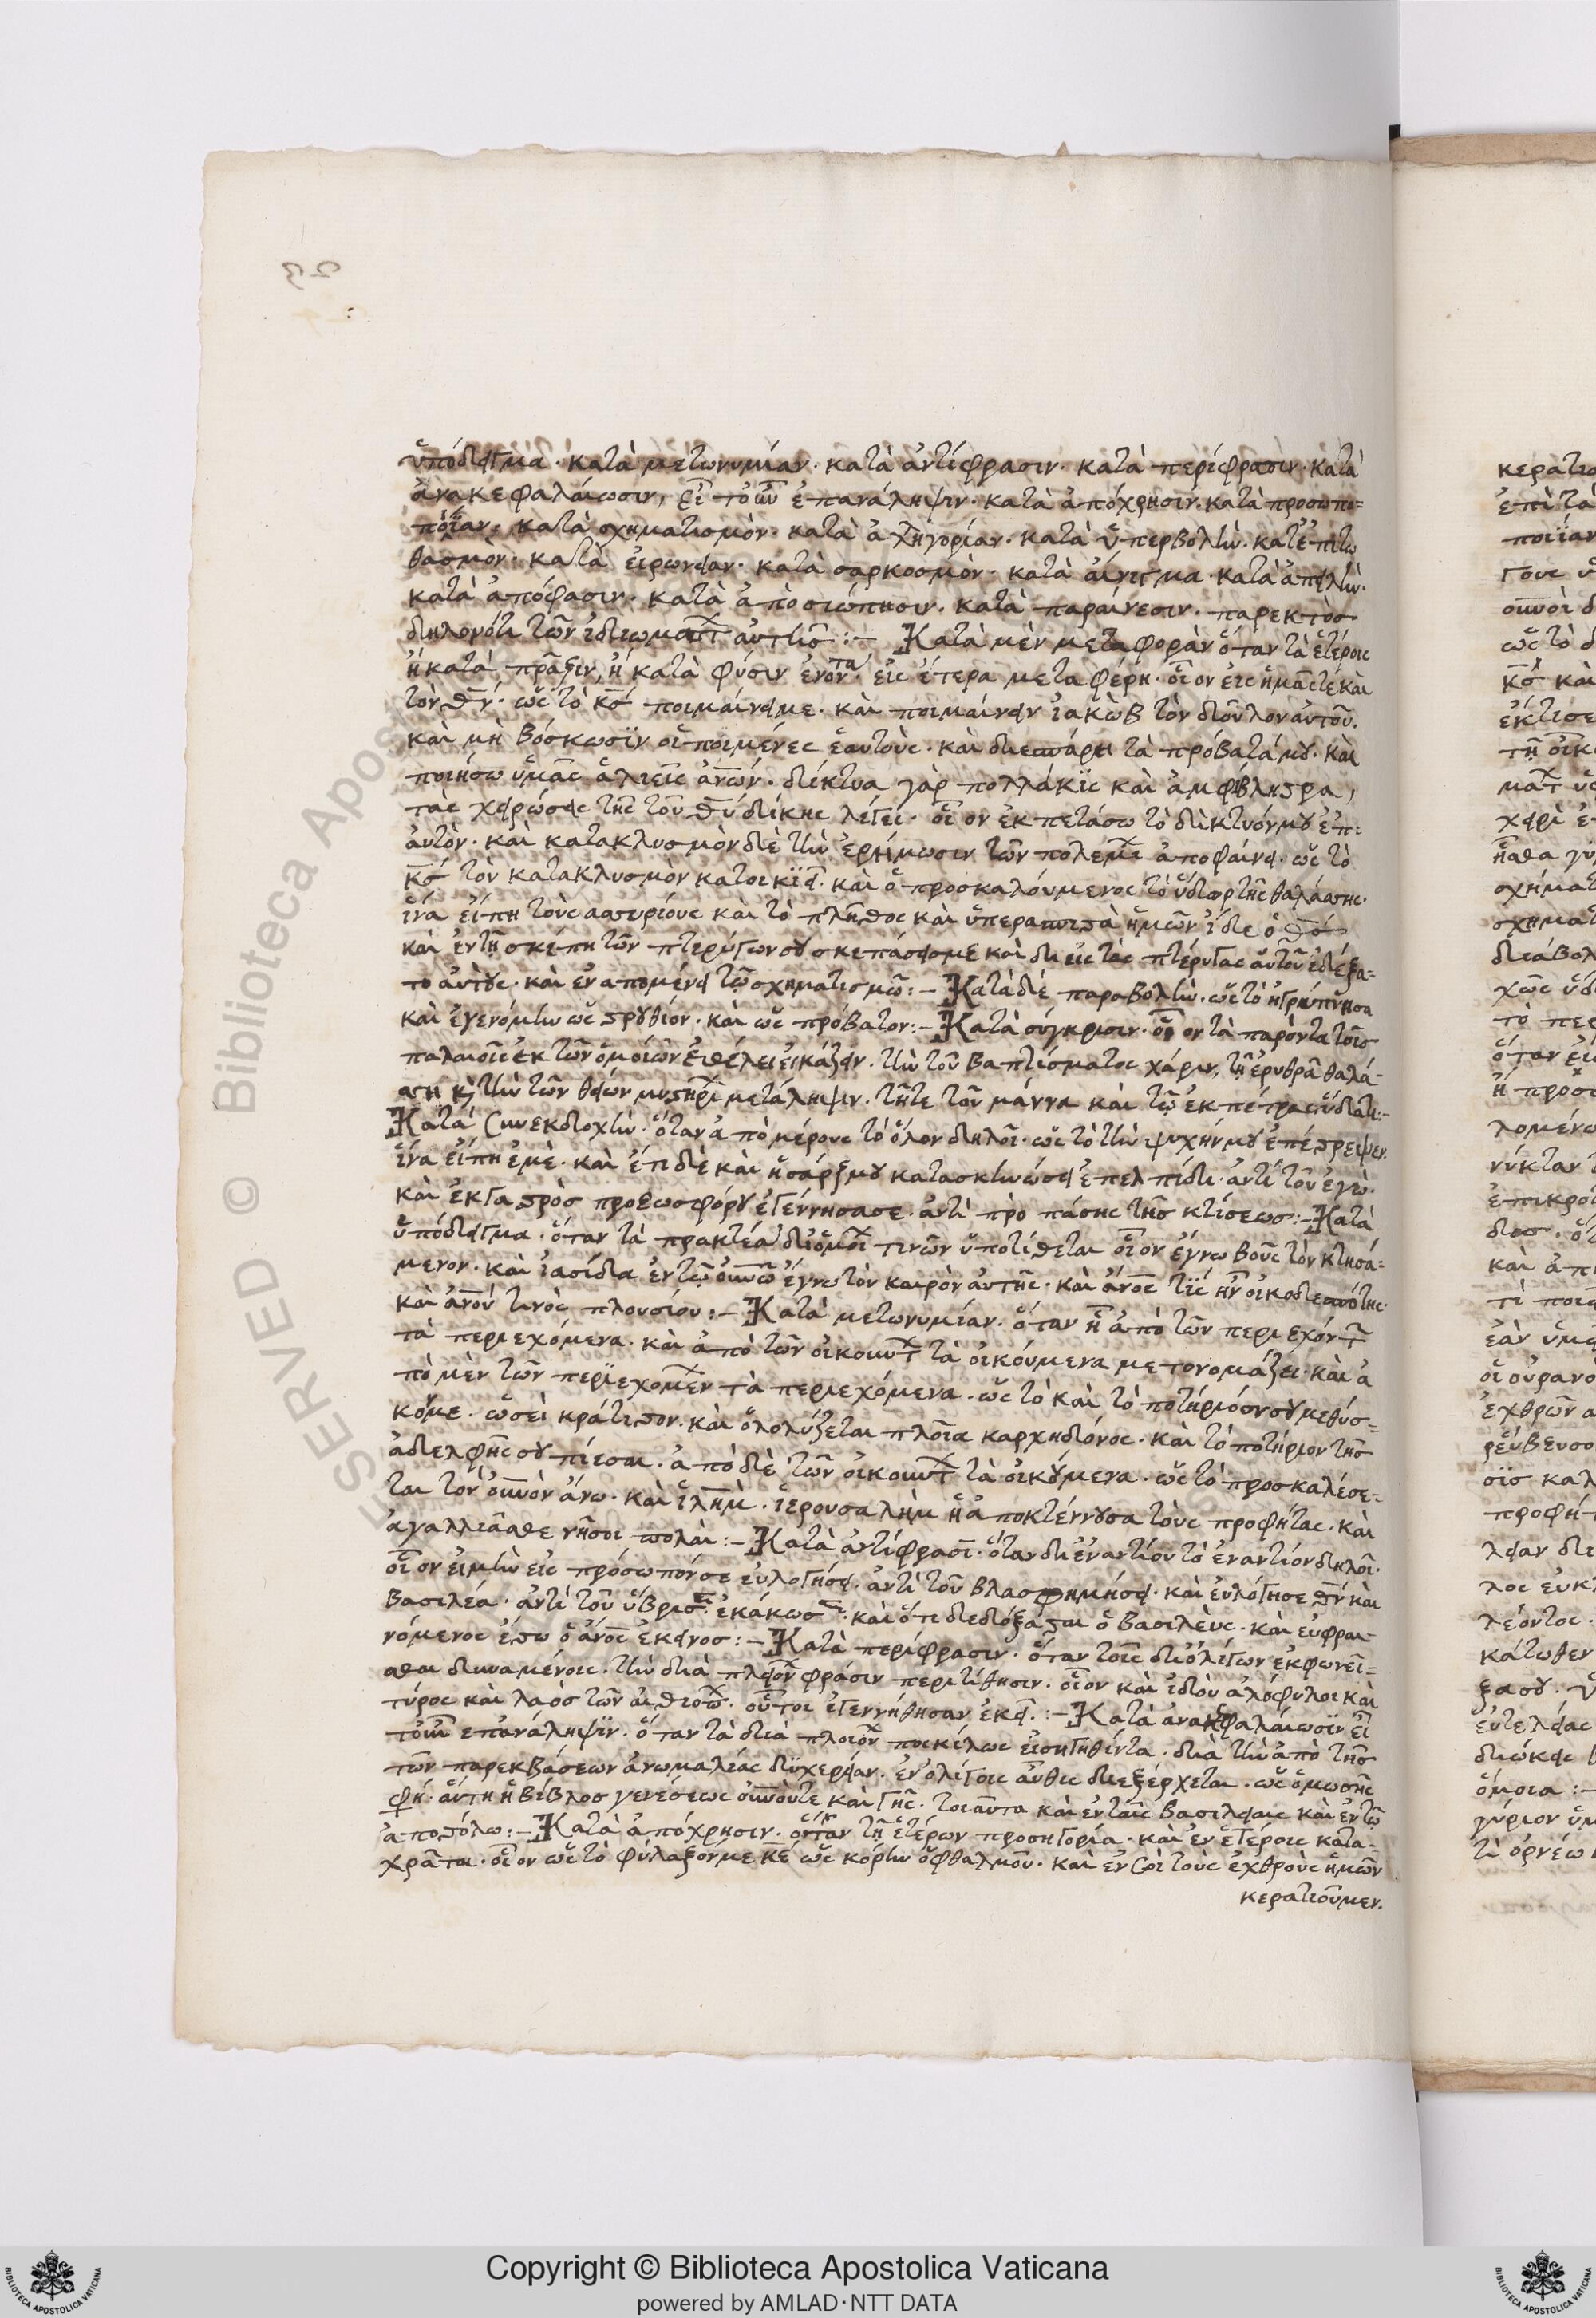 ὑπόδειγμα· κατὰ μετωνυμίαν· κατὰ ἀντίφρασιν· κατὰ περίφρασιν· κατὰ
ἀνακεφαλαίωσιν, ἐπανάληψιν· κατὰ ἀπόχρησιν· κατὰ προσωπο=
ποιΐαν· κατὰ σχηματισμὸν· κατὰ ἀλληγορίαν· κατὰ ὑπερβολὴν· κατ' ἐπιτω
θασμὸν· κατὰ εἰρωνείαν· κατὰ σαρκοσμὸν· κατὰ αἴνιγμα· κατὰ ἀπειλὴν·
κατὰ ἀπόφασιν· κατὰ ἀπὸσιώπησιν· κατὰ παραίνεσιν· παρεκτὸσ
δηλονότι τῶν ἰδιωμάτ αὐτῆσ :– Κατὰ μὲν μεταφορὰν ὅταν τὰ ἑτέροις
ἢ κατὰ πρᾶξιν, ἢ κατὰ φύσιν ἐνόντα· εἰς ἕτερα μεταφέρη· οἷον εἰς ἡμᾶς τὲ καὶ
τὸν θν· ὡς τὸ κσ ποιμαίνει με· καὶ ποιμαίνειν ἰακὼβ τὸν δοῦλον αὐτοῦ·
καὶ μὴ βόσκωσϊν οἱ ποιμένες ἑαυτοὺς· καὶ διεσπάρη τὰ πρόβατά μου· καὶ
ποιήσω ὑμᾶς ἁλιεῖς ἀνων· δίκτυα γὰρ πολλάκϊς καὶ ἀμφίβληστρα,
τὰς χειρώσεις τῆς τοῦ θυ δίκης λέγει· οἷον ἐκπετάσω τὸ δίκτυόν μου ἐπ=
αὐτὸν· καὶ κατακλυσμὸν δὲ τὴν ἐρήμωσιν τῶν πολεμι ἀποφαίνει· ὡς τὸ
κσ τὸν κατακλυσμὸν κατοικϊεῖ· καὶ ὁ προσκαλούμενος τὸ ὕδωρ τῆς θαλάσσης·
ἵνα εἴπη τοὺς ἀσσυρίους καὶ τὸ πλῆθος καὶ ὑπερασπιστὰ ἡμῶν ἴδε ὁ θσ
καὶ ἐν τῇ σκέπη τῶν πτερύγων σου σκεπάσεις με καὶ διεὶς τὰς πτέρυγας αὑτοῦ ἐδέξα=
το αὐτοὺς· καὶ ἐν ἀπομένει τῷ σχηματισμῶ :– Κατὰ δὲ παραβολὴν· ὡς τὸ ἠγρύπνησα
καὶ ἐγενόμην ὡς στρουθίον· καὶ ὡς πρόβατον :– Κατὰ σύγκρισιν· οἷον τὰ παρόντα τοῖσ
παλαιοῖς ἐκ τῶν ὁμοίων ἐθέλει εἰκάζειν· τὴν τοῦ βαπτίσματος χάριν, τῇ ἐρυθρᾶ θαλά-
σση κ τὴν τῶν θείων μυστηρί μετάληψιν· τῆ τε τοῦ μάννα καὶ τῷ ἐκ πέτρας ὕδατι :–
Κατὰ Συνεκδοχὴν· ὅταν ἀπὸ μέρους τὸ ὅλον δηλοῖ· ὡς τὸ τὴν ψυχήν μου ἐπέστρεψεν·
ἵνα εἴπη ἐμὲ· καὶ ἔτι δὲ καὶ ἡ σάρξ μου κατασκηνώσει ἐπ' ἐλπίδι· ἀντὶ τοῦ ἐγώ·
καὶ ἐκ γαστρὸς πρὸ ἑωσφόρου ἐγέννησά σε· ἀντὶ πρὸ πάσης τῆσ κτίσεωσ :– Κατὰ
ὑπόδειγμα· ὅταν τὰ πρακτέα τινῶν ὑποτίθεται οἷον ἔγνω βοῦς τὸν κτησά-
μενον· καὶ ἰασίδια ἐν τῷ ουνω ἔγνω τὸν καιρὸν αὐτῆς· καὶ ἄνος τϊς ἦν οἰκοδεσπότης·
καὶ ἀνου τινὸς πλουσίου :– Κατὰ μετωνυμίαν· ὅταν ἢ ἀπὸ τῶν περιεχόντ
τὰ περιεχόμενα· καὶ ἀπὸ τῶν οἰκουντ τὰ οἰκούμενα μετονομάζει· καὶ ἀ
πὸ μὲν τῶν περϊεχομεν τὰ περιεχόμενα· ὡς τὸ καὶ τὸ ποτήριόν σου μεθύσ=
κόν με· ὡσεὶ κράτιστον· καὶ ὀλολύζεται πλοῖα καρχηδόνος· καὶ τὸ ποτήριον τῆσ
ἀδελφῆς σου πίεσαι· ἀπὸ δὲ τῶν οἰκουντ τὰ οἰκούμενα· ὡς τὸ προσκαλέσε=
ται τὸν ουνον ἄνω· καὶ ἱλημ· ἱερουσαλὴμ ἡ ἀποκτέννουσα τοὺς προφήτας· καὶ
ἀγαλλιᾶσθε νῆσοι πολλαὶ :– Κατὰ ἀντίφρασι· ὅταν δι' ἐναντίον τὸ ἐναντίον δηλοῖ·
οἷον εἰ μὴν εἰς πρόσωπόν σε εὐλογήσει· ἀντὶ τοῦ βλασφημήσει· καὶ εὐλόγησε θν καὶ
βασιλέα· ἀντὶ τοῦ ὕβρισε· ἐκάκωσε· καὶ ὅτι δεδόξασται ὁ βασιλεὺς· καὶ εὐφραι-
νόμενος ἔστω ὁ ἄνος ἐκεῖνοσ :– Κατὰ περίφρασιν· ὅταν τοῖς δι' ὀλίγων ἐκφωνεῖ=
σθαι δυναμένοις· τὴν διὰ πλειον φράσιν περιτίθησιν· οἷον καὶ ἰδοὺ ἀλόφυλοι καὶ
τύρος καὶ λαὸσ τῶν αἰθιοπ· οὗτοι ἐγεννήθησαν ἐκεῖ :– Κατὰ ἀνακεφαλαίωσϊν
ἐπανάληψϊν· ὅταν τὰ διὰ πλοιον ποικίλως εἰσηγηθέντα· διὰ τὴν ἀπὸ τῆσ
τῶν παρεκβάσεων ἀνωμαλίας δϋχερείαν· ἐν ὀλίγοις αὖθις διεξέρχεται· ὡς ὁ μωσῆς
φη· αὕτη ἡ βίβλοσ γενέσεως ουνοῦ τε καὶ γῆς· τοιαῦτα καὶ ἐν ταῖς βασιλείαις καὶ ἐν τῶ
ἀποστόλω :– Κατὰ ἀπόχρησιν· ὅταν τῇ ἑτέρων προσηγορία· καὶ ἐν ἑτέροις κατα-
χρᾶται· οἷον ὡς τὸ φύλαξόν με κε ὡς κόρην ὀφθαλμοῦ· καὶ ἐν Σοὶ τοὺς ἐχθροὺς ἡμῶν
κερατιοῦμεν.
© Biblioteca Apos
SERVED
Copyright © Biblioteca Apostolica Vaticana
powered by AMLAD·NTT DATA